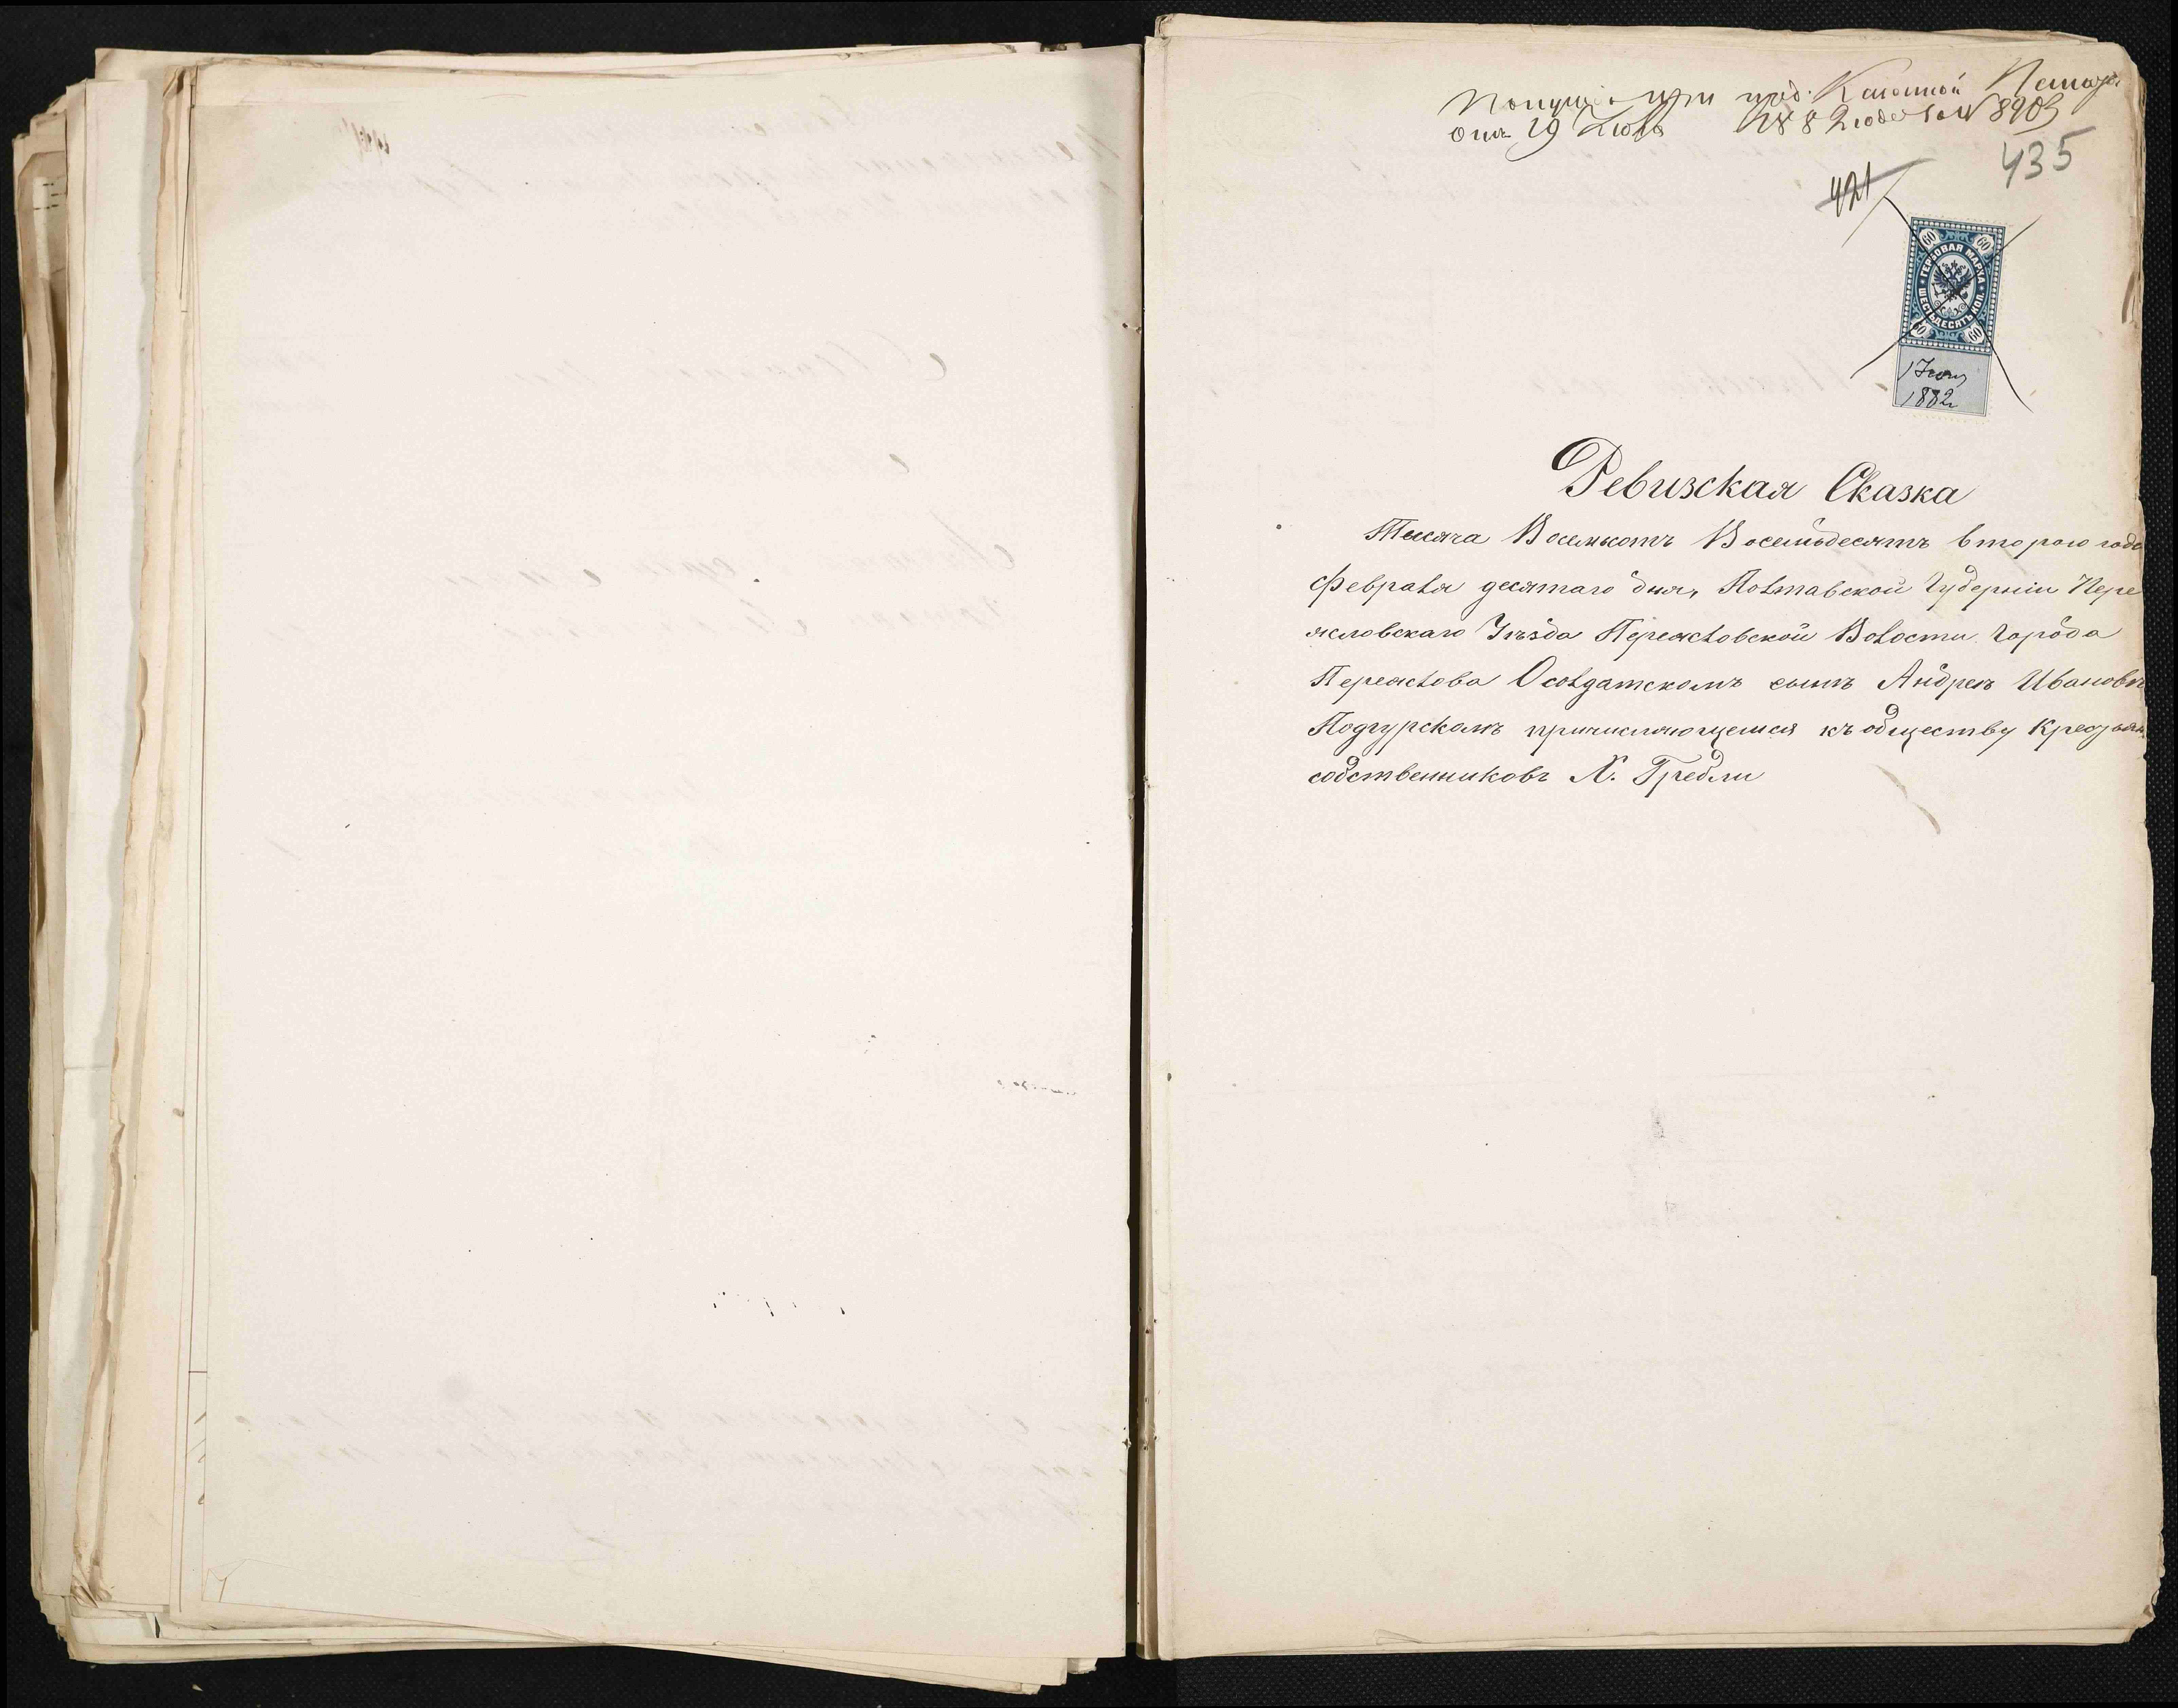 при пред. Казенной Палаты
отъ 19 Іюля 1882 года за № 8903
435
421
60 60
ГЕРБОВАЯ МАРКА
ШЕСТЬДЕСЯТЪ КОП.
60 60
1882
Ревизская Сказка
Тысяча Восемьсотъ Восемьдесятъ втораго года
Февраля десятаго дня, Полтавской Губерніи Пере
яславскаго Уѣзда Переяславской Волости Города
Переяслова О солдатскомъ сынѣ Андреѣ Ивановѣ
Подгурскомъ причисляющемся къ обществу Крестьянъ
собственниковъ Х. Гребли